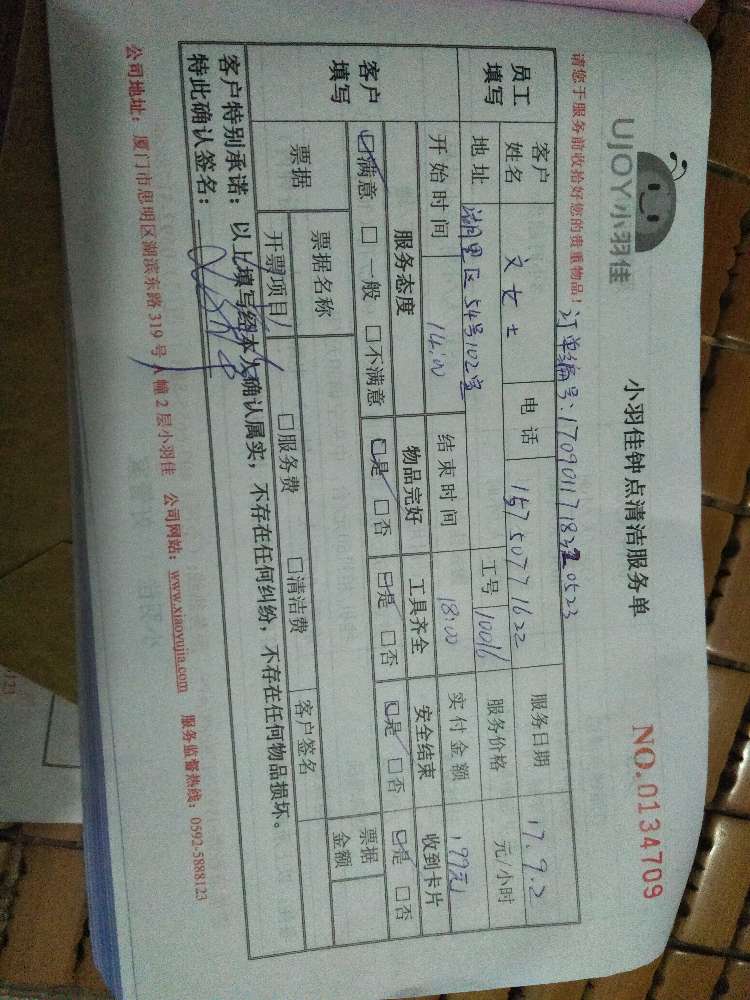 UJOY小羽佳
小羽佳钟点清洁服务单
NO.0134709
请您于服务前收拾好您的贵重物品!
订单编号:
员工填写
客户姓名 文女士 电话 15750771622 服务日期 17.9.2
地址 湖里区54号102室 工号 10016 服务价格 元/小时
开始时间 14:00 结束时间 18:00 实付金额 199元
客户填写
服务态度 物品完好 工具齐全 安全结束 收到卡片
☑满意 □一般 □不满意 ☑是 □否 ☑是 □否 ☑是 □否 ☑是 □否
票据 票据名称 票据金额
开票项目 □服务费 □清洁费 客户签名
客户特别承诺:以上填写经本人确认属实,不存在任何纠纷,不存在任何物品损坏。
特此确认签名:
公司地址:厦门市思明区湖滨东路319号A幢2层小羽佳 公司网站:www.xiaoyujia.com 服务监督热线:0592-5888123